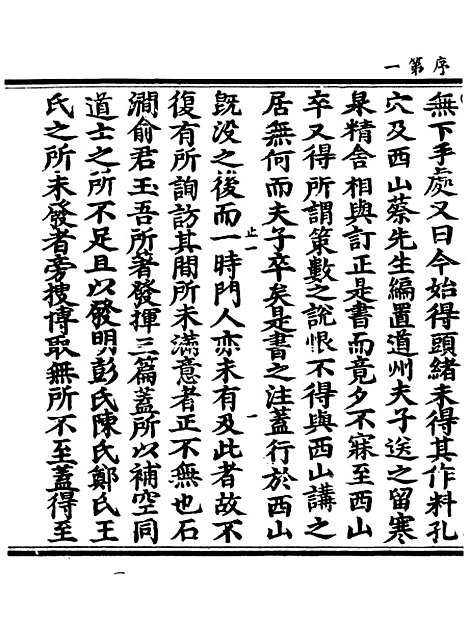 序第一
無下手處又曰今始得頭緒未得其作料孔
穴及西山蔡先生編置道州夫子送之留寒
泉精舍相與訂正是書而竟夕不寐至西山
卒又得所謂策數之說恨不得與西山講之
居無何而夫子卒矣是書之注蓋行於西山
既没之後而一時門人亦未有及此者故不
復有所詢訪其間所未滿意者正不無也石
澗俞君玉吾所著發揮三篇蓋所以補空同
道士之所不足且以發明彭氏陳氏鄭氏王
氏之所未發者旁搜博取無所不至蓋得至